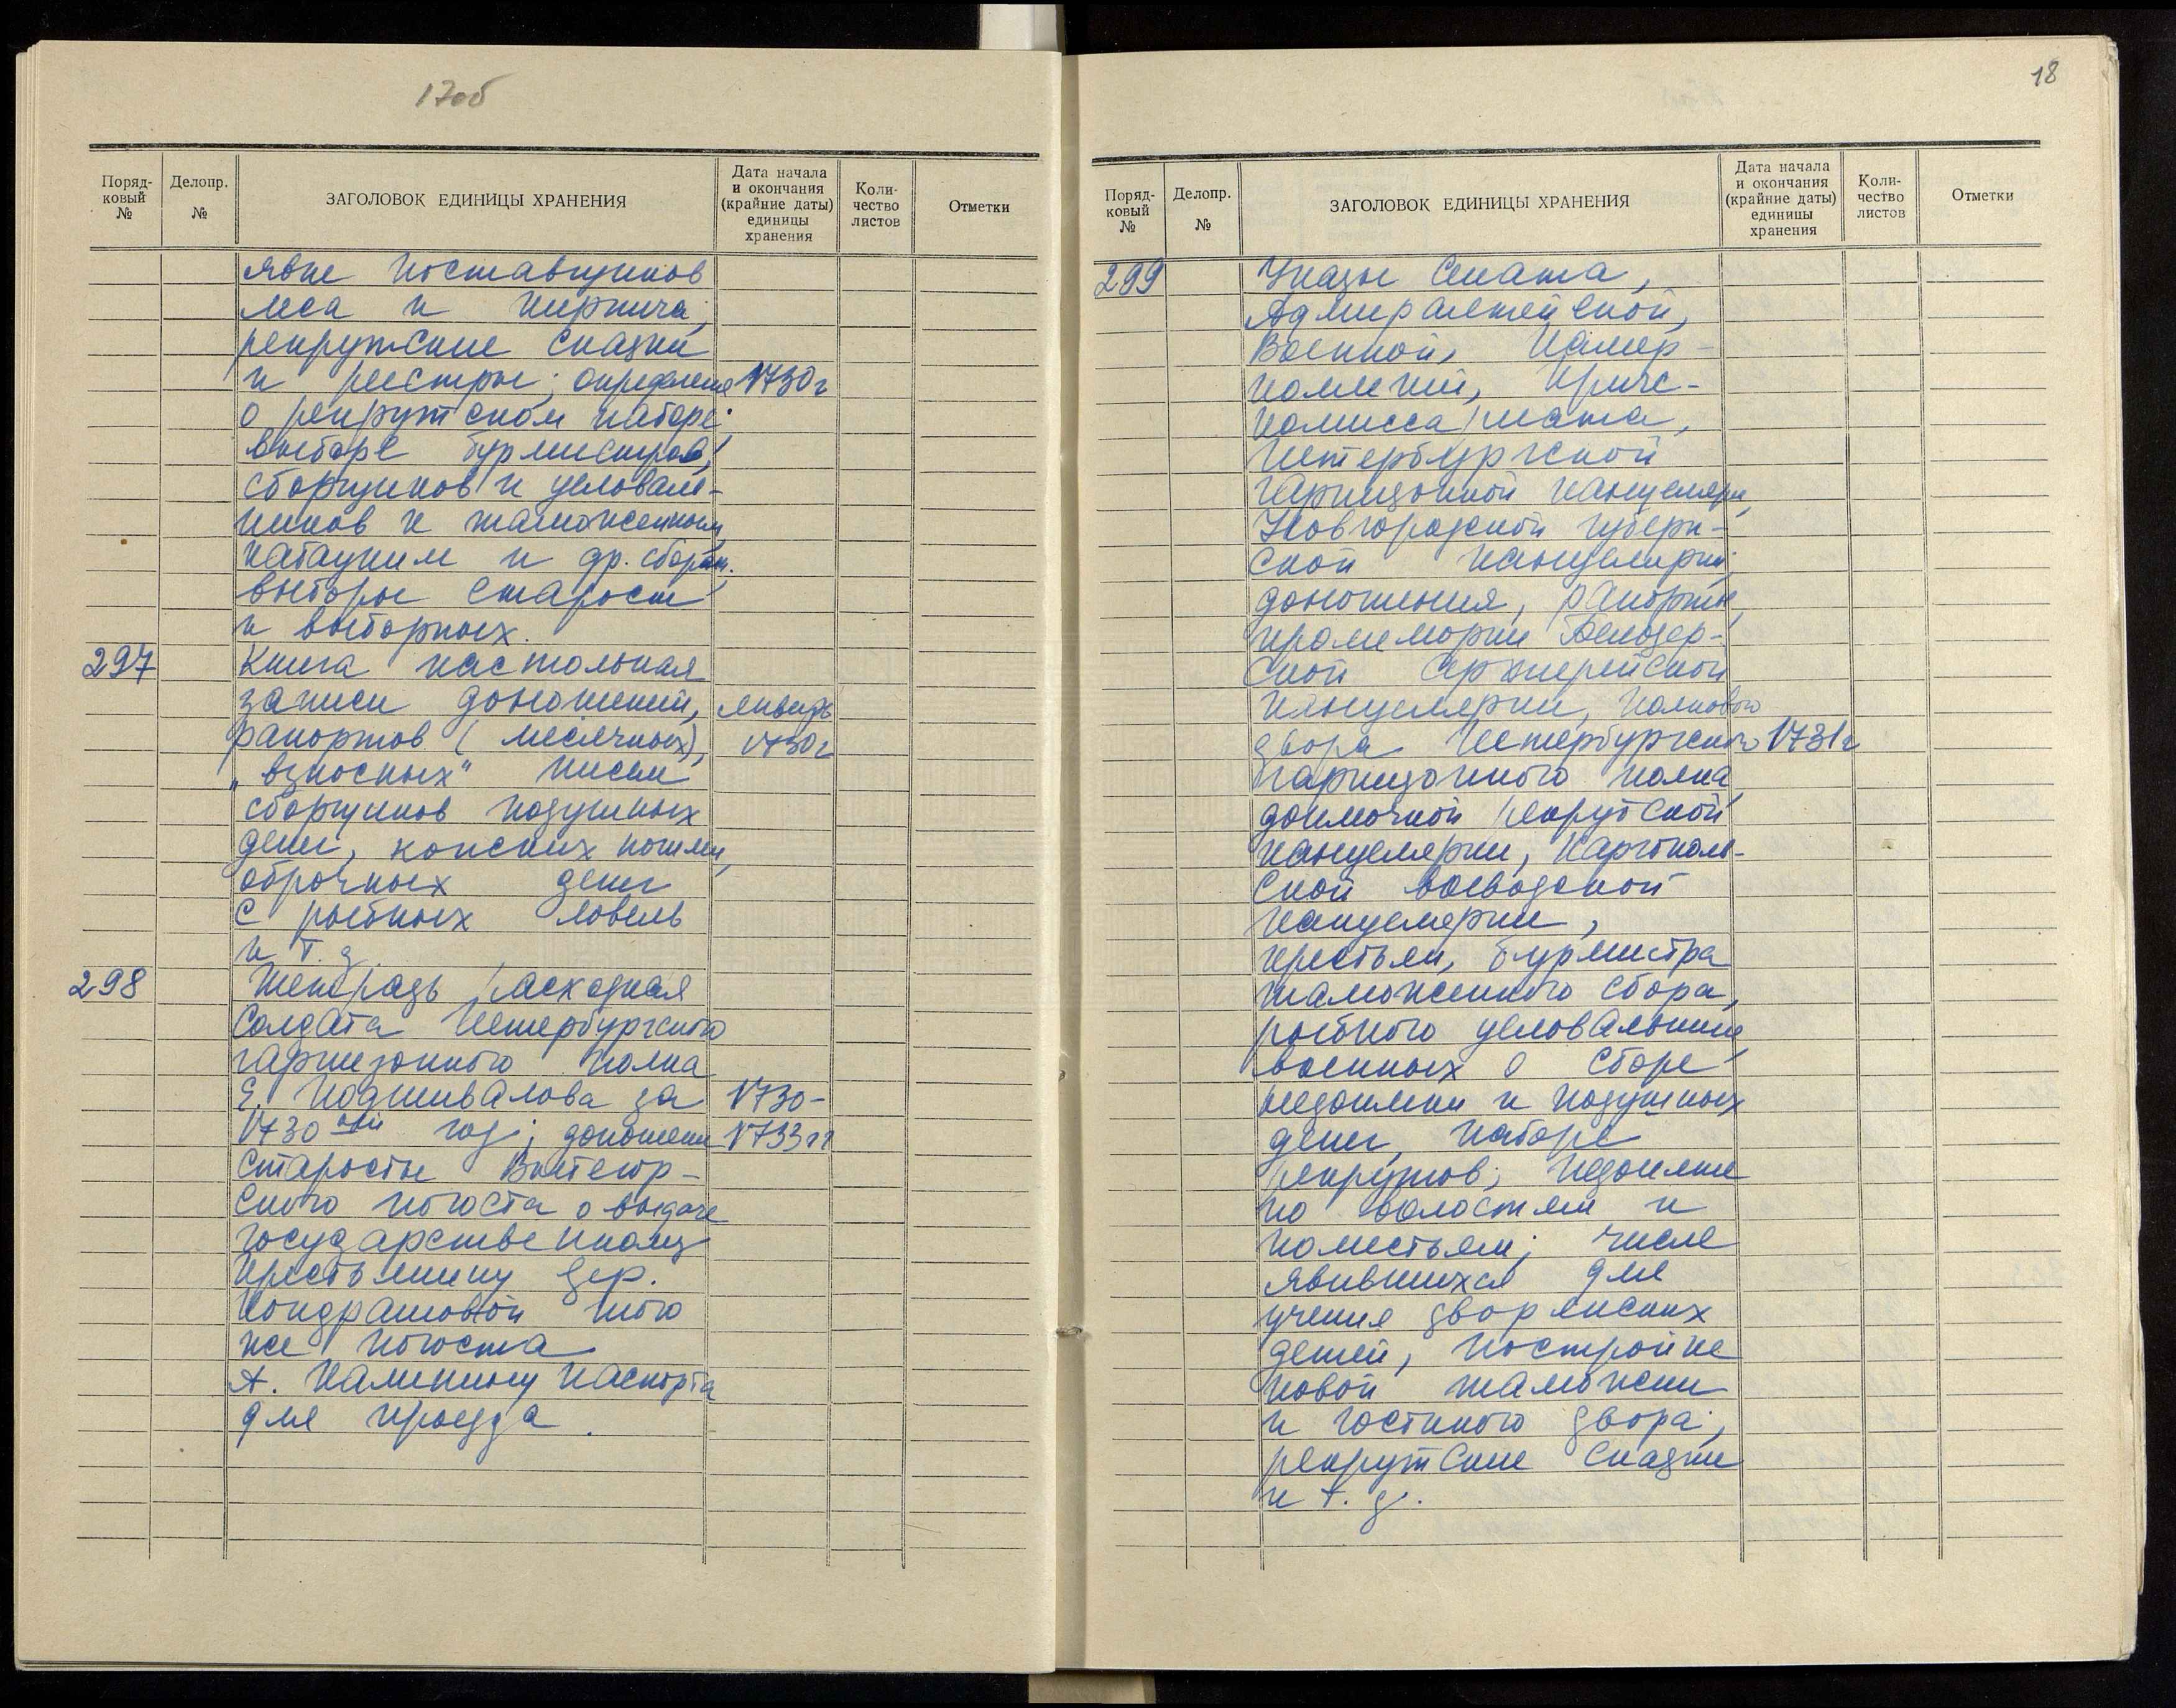 17об
Поряд-
ковый
№
Делопр.
№
ЗАГОЛОВОК ЕДИНИЦЫ ХРАНЕНИЯ
Дата начала
и окончания
(крайние даты)
единицы
хранения
Коли-
чество
листов
Отметки
явке поставщиков
леса и кирпича;
рекрутские сказки
и реестры; определения 1730 г
о рекрутском наборе;
выборе бурмистров,
сборщиков и целоваль-
ников к таможенным,
кабацким и др. сборам;
выборы старост
и выборных.
297 Книга настольная
записи доношений, январь
рапортов (месячных), 1730 г
„взносных" писем
сборщиков подушных
денег, конских пошлин,
оброчных денег
с рыбных ловель
и т. д.
298 Тетрадь расходная
солдата Петербургского
гарнизонного полка
Е. Подшивалова за 1730-
1730 ый год; доношение 1733 гг
старосты Вытегор-
ского погоста о выдаче
государственному
крестьянину дер.
Кондрашовой того
же погоста
А. Калинину паспорта
для проезда.
18
Поряд-
ковый
№
Делопр.
№
ЗАГОЛОВОК ЕДИНИЦЫ ХРАНЕНИЯ
Дата начала
и окончания
(крайние даты)
единицы
хранения
Коли-
чество
листов
Отметки
299 Указы Сената,
Адмиралтейской,
Военной, Камер-
коллегий, Кригс-
комиссариата,
Петербургской
гарнизонной канцелярии,
Новгородской губерн-
ской канцелярии;
доношения, рапорты,
промемории Белозер-
ской архиерейской
канцелярии, полкового
двора Петербургского 1731 г
гарнизонного полка,
доимочной рекрутской
канцелярии, Каргополь-
ской воеводской
канцелярии,
крестьян, бурмистра
таможенного сбора,
рыбного целовальника,
военных о сборе
недоимки и подушных
денег, наборе
рекрутов; недоимке
по волостям и
поместьям; числе
явившихся для
учения дворянских
детей, постройке
новой таможни
и гостиного двора;
рекрутские сказки
и т. д.